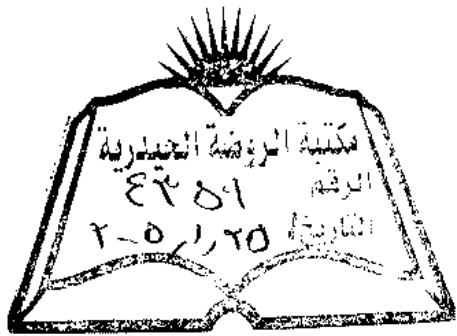 مكتبة الروضة الحيدرية
الرقم ٤٣٥٦
التاريخ ٢٠٠٥/١/٢٥